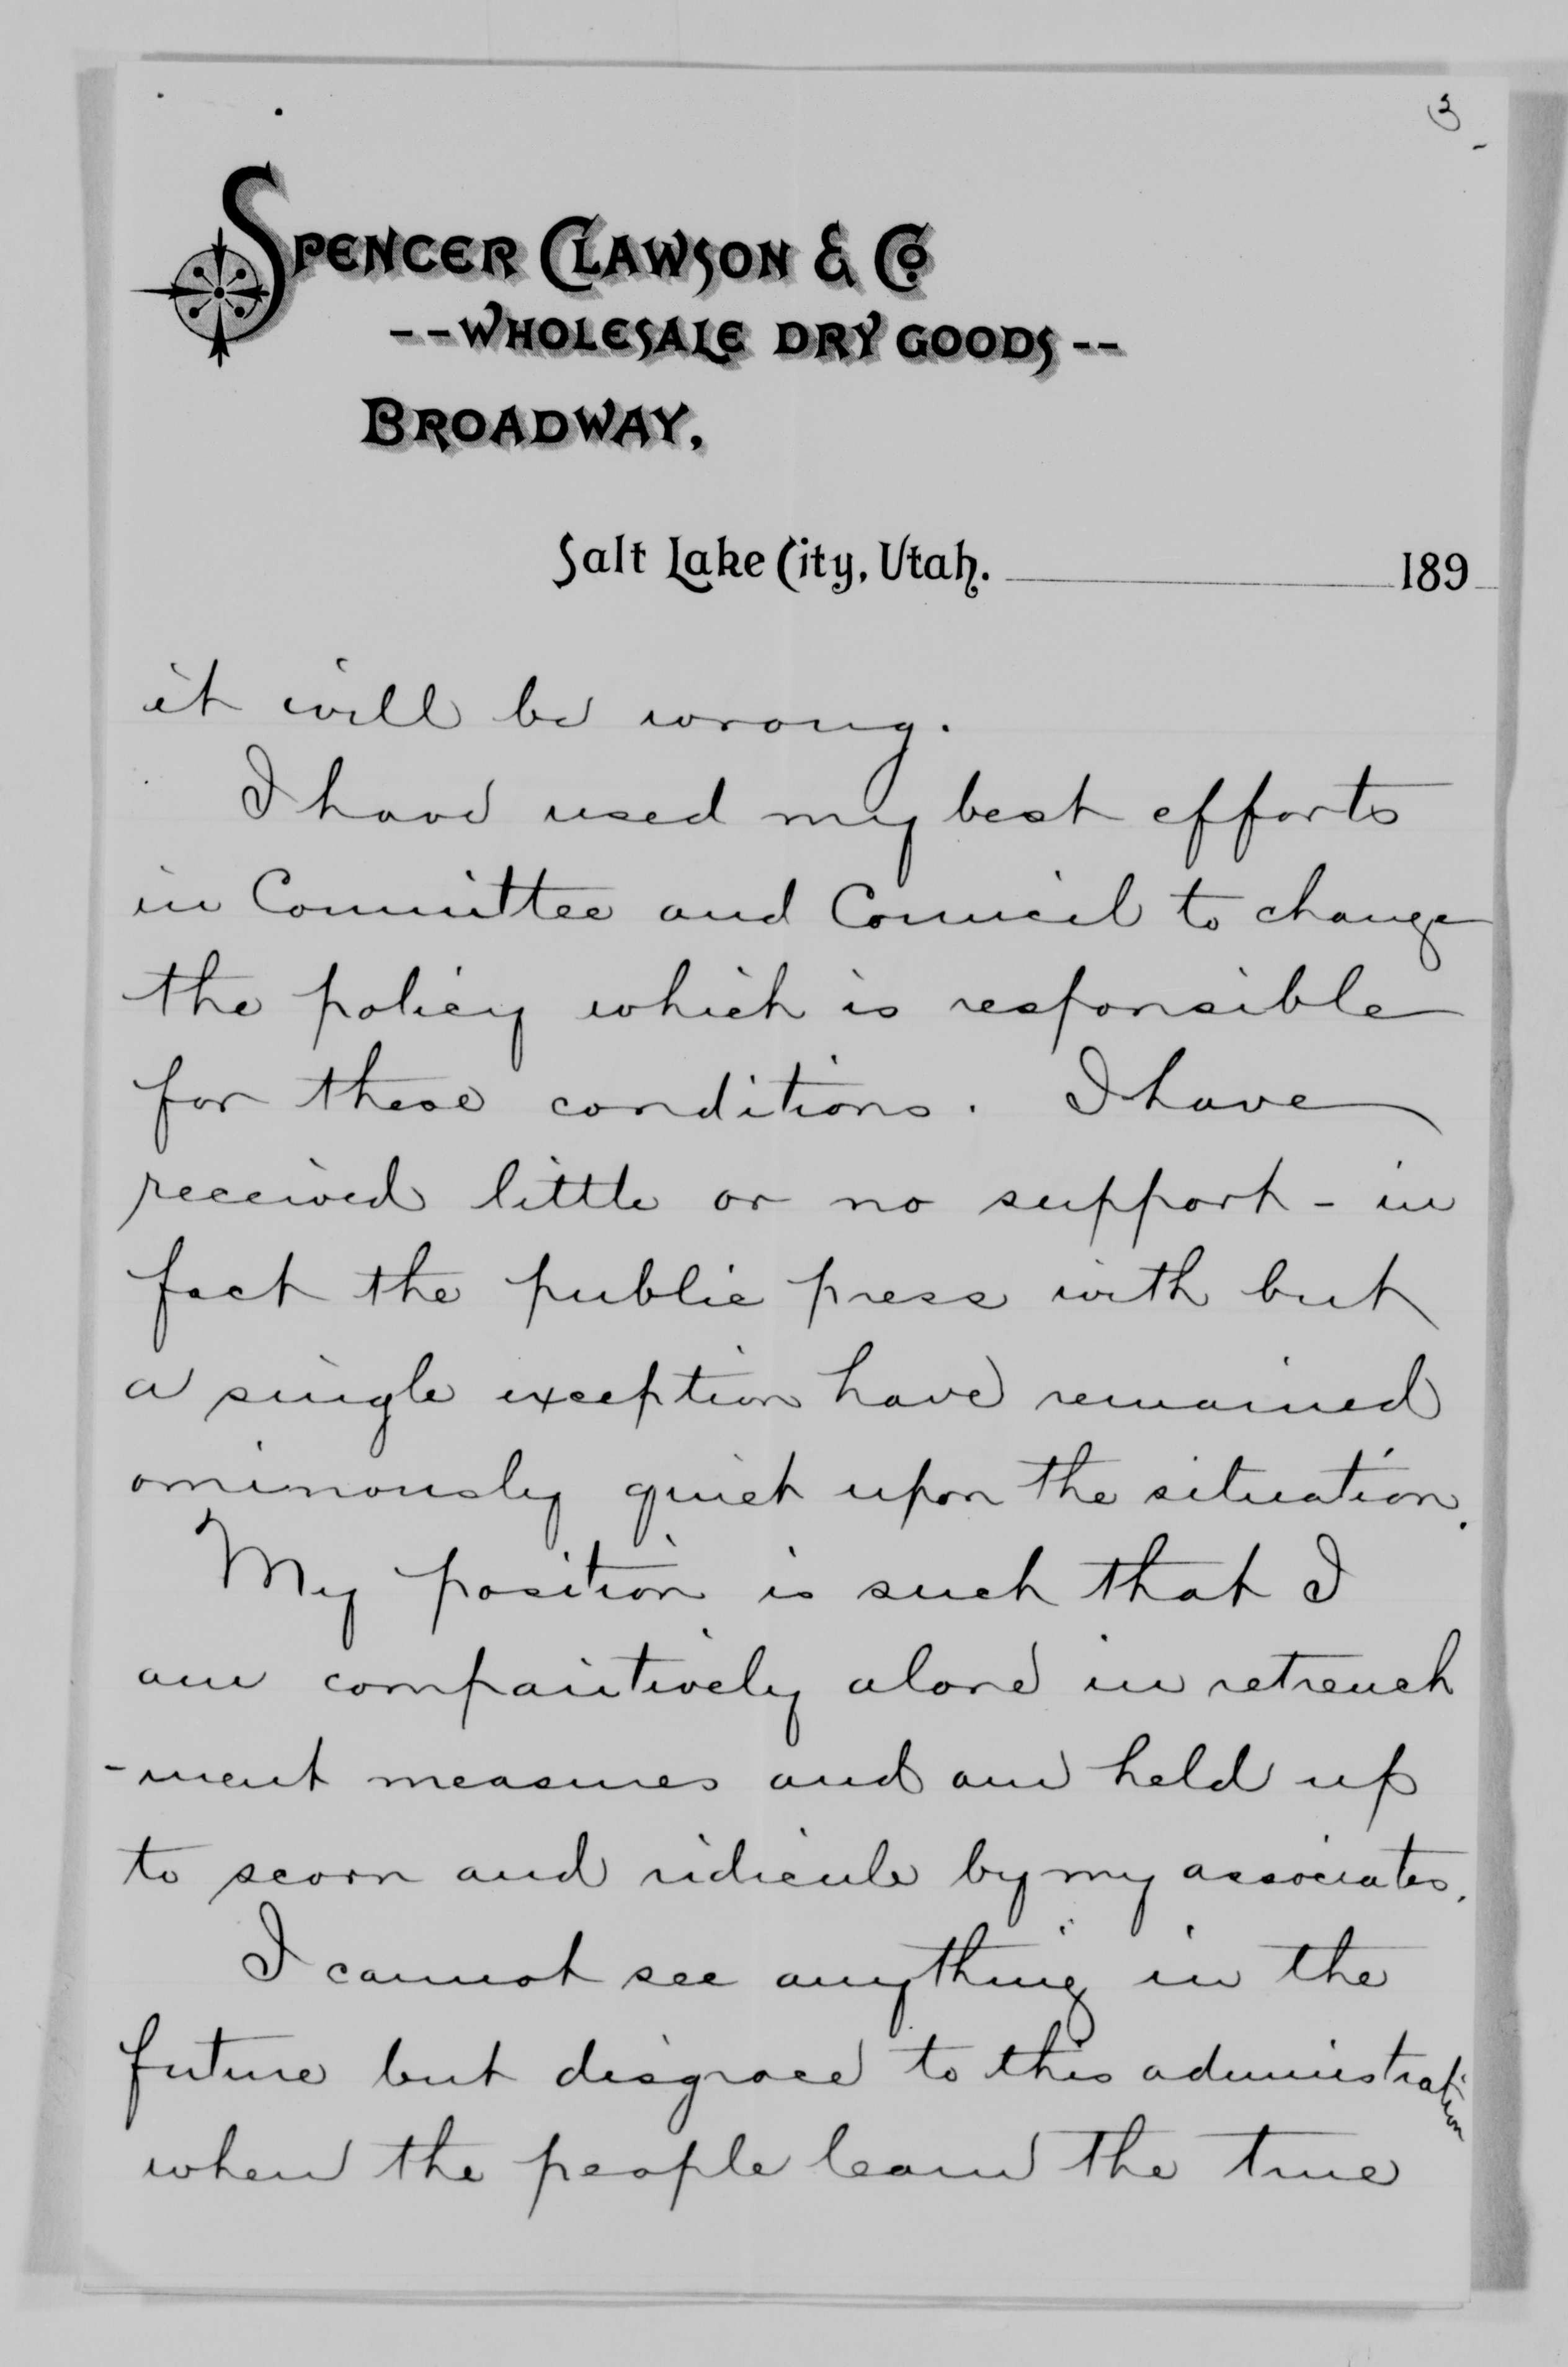 3
SPENCER CLAWSON & CO
--WHOLESALE DRY GOODS--
BROADWAY,
Salt Lake City, Utah. 189
it will be wrong.
I have used my best efforts
in Committee and Council to change
the policy which is responsible
for these conditions. I have
received little or no support - in
fact the public press with but
a single exception have remained
ominously quiet upon the situation.
My position is such that I
am compairtively alone in retrench
-ment measures and am held up
to scorn and ridicule by my associates.
I cannot see anything in the
future but disgrace to this administration
when the people learn the true